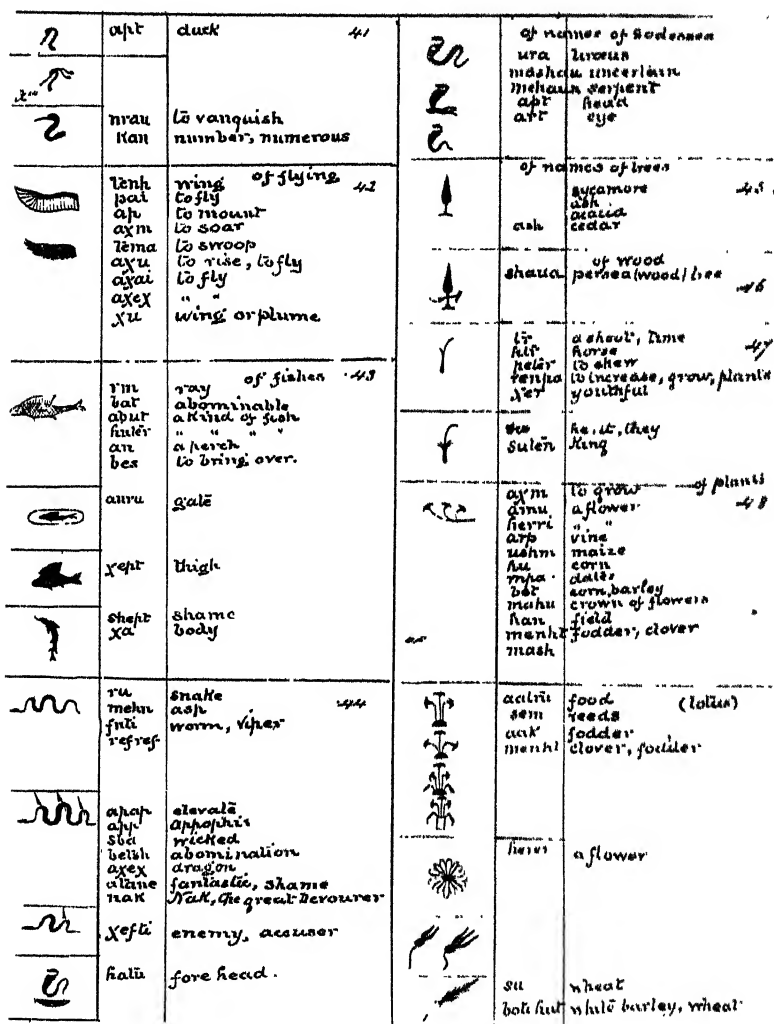 apt duck 41
nrau to vanquish
Kan number, numerous
of flying 42
tenh wing
pai to fly
ap to mount
axm to soar
tema to swoop
axu to rise, to fly
axai to fly
axex " "
xu wing or plume
of fishes 43
rm ray
bat abominable
abut a kind of fish
huter " " " "
an a perch
bes to bring over.
anru gate
xept thigh
shept shame
xa body
ru snake
mehn asp 44
fnti worm, viper
refref
apap elevate
app appophis
sba wicked
betsh abomination
axex dragon
atane fantastic, shame
nak Nak, the great Devourer
xefti enemy, accuser
hatu fore head.
of names of Goddesses
ura uraeus
mashau uncertain
mehaun serpent
apt head
art eye
of names of trees
sycamore 45
ash
acacia
ash cedar
of wood
shaua persea (wood) tree 46
tr a shoot, time
htr horse 47
peter to shew
renpa to increase, grow, plants
xer youthful
su he, it, they
suten King
of plants
axm to grow
amu a flower 48
herri " "
arp vine
ushm maize
hu corn
mpa. dates
bot corn, barley
mahu crown of flowers
han field
menht fodder, clover
mash
aalru food (lotus)
sem reeds
aak fodder
menht clover, fodder
herer a flower
su wheat
boti hut white barley, wheat